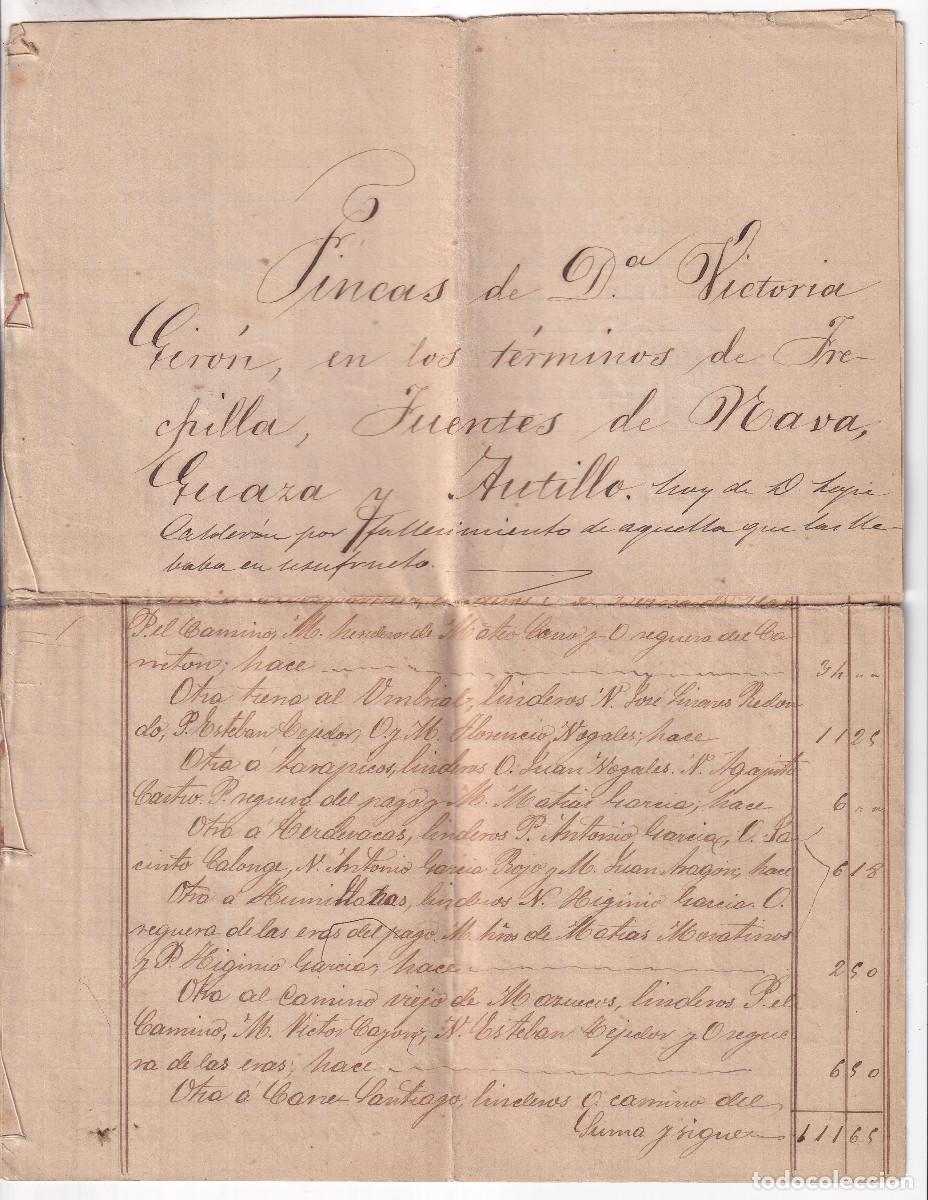 Fincas de D.ª Victoria
Girón, en los términos de Fre-
chilla, Fuentes de Nava,
Guaza y Autillo. hoy de D
Calderón por fallecimiento de aquella que las lle-
baba en usufructo.
P. el Camino, M. herederos de Mateo Cano y O reguera del Ca-
rreton; hace 34 " "
Otra tierra al Umbrial, linderos N. José Linares Redon
do, P. Esteban Tejedor, O. y M. Florencio Nogales; hace 11 25
Otra á Zarapicos, linderos O. Juan Nogales. N. Agapito
Castro. P. reguera del pago y M. Matias Garcia; hace 6 " "
Otra á Terdevacas, linderos P. Antonio Garcia, O. Ja
cinto Calonge, N. Antonio Garcia Rojo y M. Juan Aragon; hace 6 18
Otra á Humilladas, linderos N. Higinio Garcia. O.
reguera de las eras del pago. M. hros de Matias Moratinos
y P. Higinio Garcia; hace 2 50
Otra al Camino viejo de Mazuecos, linderos P. el
Camino, M. Victor Cazon, N. Esteban Tejedor y O regue
ra de las eras; hace 6 50
Otra á Carre Santiago, linderos O. camino del
Suma y sigue 111 65
todocoleccion